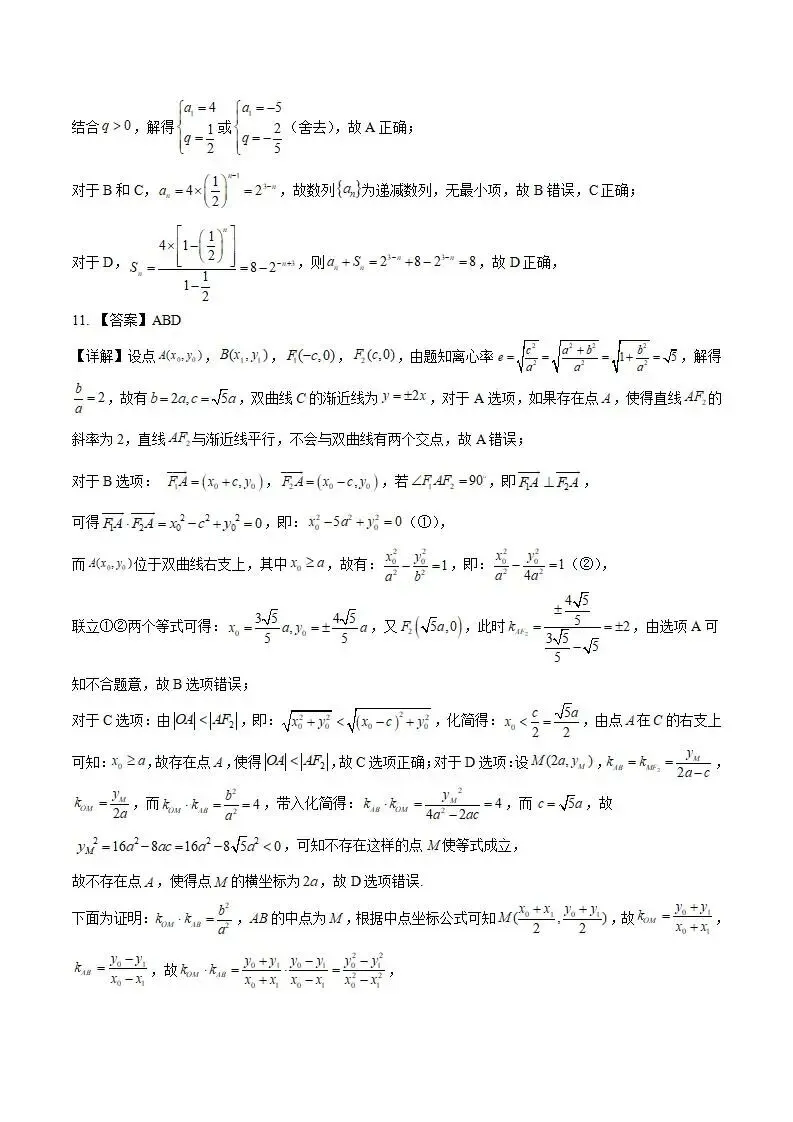 结合 $q>0$，解得 $\begin{cases} a_1=4 \\ q=\frac{1}{2} \end{cases}$ 或 $\begin{cases} a_1=-5 \\ q=-\frac{2}{5} \end{cases}$（舍去），故 A 正确；
对于 B 和 C，$a_n=4\times\left(\frac{1}{2}\right)^{n-1}=2^{3-n}$，故数列$\{a_n\}$为递减数列，无最小项，故 B 错误，C 正确；
对于 D，$S_n=\frac{4\times\left[1-\left(\frac{1}{2}\right)^n\right]}{1-\frac{1}{2}}=8-2^{-n+3}$，则$a_n+S_n=2^{3-n}+8-2^{3-n}=8$，故 D 正确，
11. 【答案】ABD
【详解】设点$A(x_0,y_0)$，$B(x_1,y_1)$，$F_1(-c,0)$，$F_2(c,0)$，由题知离心率 $e=\sqrt{\frac{c^2}{a^2}}=\sqrt{\frac{a^2+b^2}{a^2}}=\sqrt{1+\frac{b^2}{a^2}}=\sqrt{5}$，解得
$\frac{b}{a}=2$，故有$b=2a,c=\sqrt{5}a$，双曲线 C 的渐近线为 $y=\pm2x$，对于 A 选项，如果存在点 $A$，使得直线 $AF_2$ 的
斜率为 2，直线 $AF_2$ 与渐近线平行，不会与双曲线有两个交点，故 A 错误；
对于 B 选项： $\overrightarrow{F_1A}=(x_0+c,y_0)$，$\overrightarrow{F_2A}=(x_0-c,y_0)$，若$\angle F_1AF_2=90^\circ$，即$\overrightarrow{F_1A}\perp\overrightarrow{F_2A}$，
可得$\overrightarrow{F_1A}\cdot\overrightarrow{F_2A}=x_0^2-c^2+y_0^2=0$，即：$x_0^2-5a^2+y_0^2=0$（①），
而$A(x_0,y_0)$位于双曲线右支上，其中$x_0\geq a$，故有：$\frac{x_0^2}{a^2}-\frac{y_0^2}{b^2}=1$，即：$\frac{x_0^2}{a^2}-\frac{y_0^2}{4a^2}=1$（②），
联立①②两个等式可得：$x_0=\frac{3\sqrt{5}}{5}a,y_0=\pm\frac{4\sqrt{5}}{5}a$，又$F_2(\sqrt{5}a,0)$，此时$k_{AF_2}=\frac{\pm\frac{4\sqrt{5}}{5}}{\frac{3\sqrt{5}}{5}-\sqrt{5}}=\pm2$，由选项 A 可
知不合题意，故 B 选项错误；
对于 C 选项：由$|OA|<|AF_2|$，即：$\sqrt{x_0^2+y_0^2}<\sqrt{(x_0-c)^2+y_0^2}$，化简得：$x_0<\frac{c}{2}=\frac{\sqrt{5}a}{2}$，由点 $A$ 在 C 的右支上
可知：$x_0\geq a$，故存在点 $A$，使得$|OA|<|AF_2|$，故 C 选项正确；对于 D 选项：设$M(2a,y_M)$，$k_{AB}=k_{MF_2}=\frac{y_M}{2a-c}$，
$k_{OM}=\frac{y_M}{2a}$，而$k_{OM}\cdot k_{AB}=\frac{b^2}{a^2}=4$，带入化简得：$k_{AB}\cdot k_{OM}=\frac{y_M^2}{4a^2-2ac}=4$，而 $c=\sqrt{5}a$，故
$y_M^2=16a^2-8ac=16a^2-8\sqrt{5}a^2<0$，可知不存在这样的点 $M$ 使等式成立，
故不存在点 $A$，使得点 $M$ 的横坐标为$2a$，故 D 选项错误.
下面为证明：$k_{OM}\cdot k_{AB}=\frac{b^2}{a^2}$，$AB$的中点为$M$，根据中点坐标公式可知$M(\frac{x_0+x_1}{2},\frac{y_0+y_1}{2})$，故$k_{OM}=\frac{y_0+y_1}{x_0+x_1}$，
$k_{AB}=\frac{y_0-y_1}{x_0-x_1}$，故$k_{OM}\cdot k_{AB}=\frac{y_0+y_1}{x_0+x_1}\cdot\frac{y_0-y_1}{x_0-x_1}=\frac{y_0^2-y_1^2}{x_0^2-x_1^2}$，